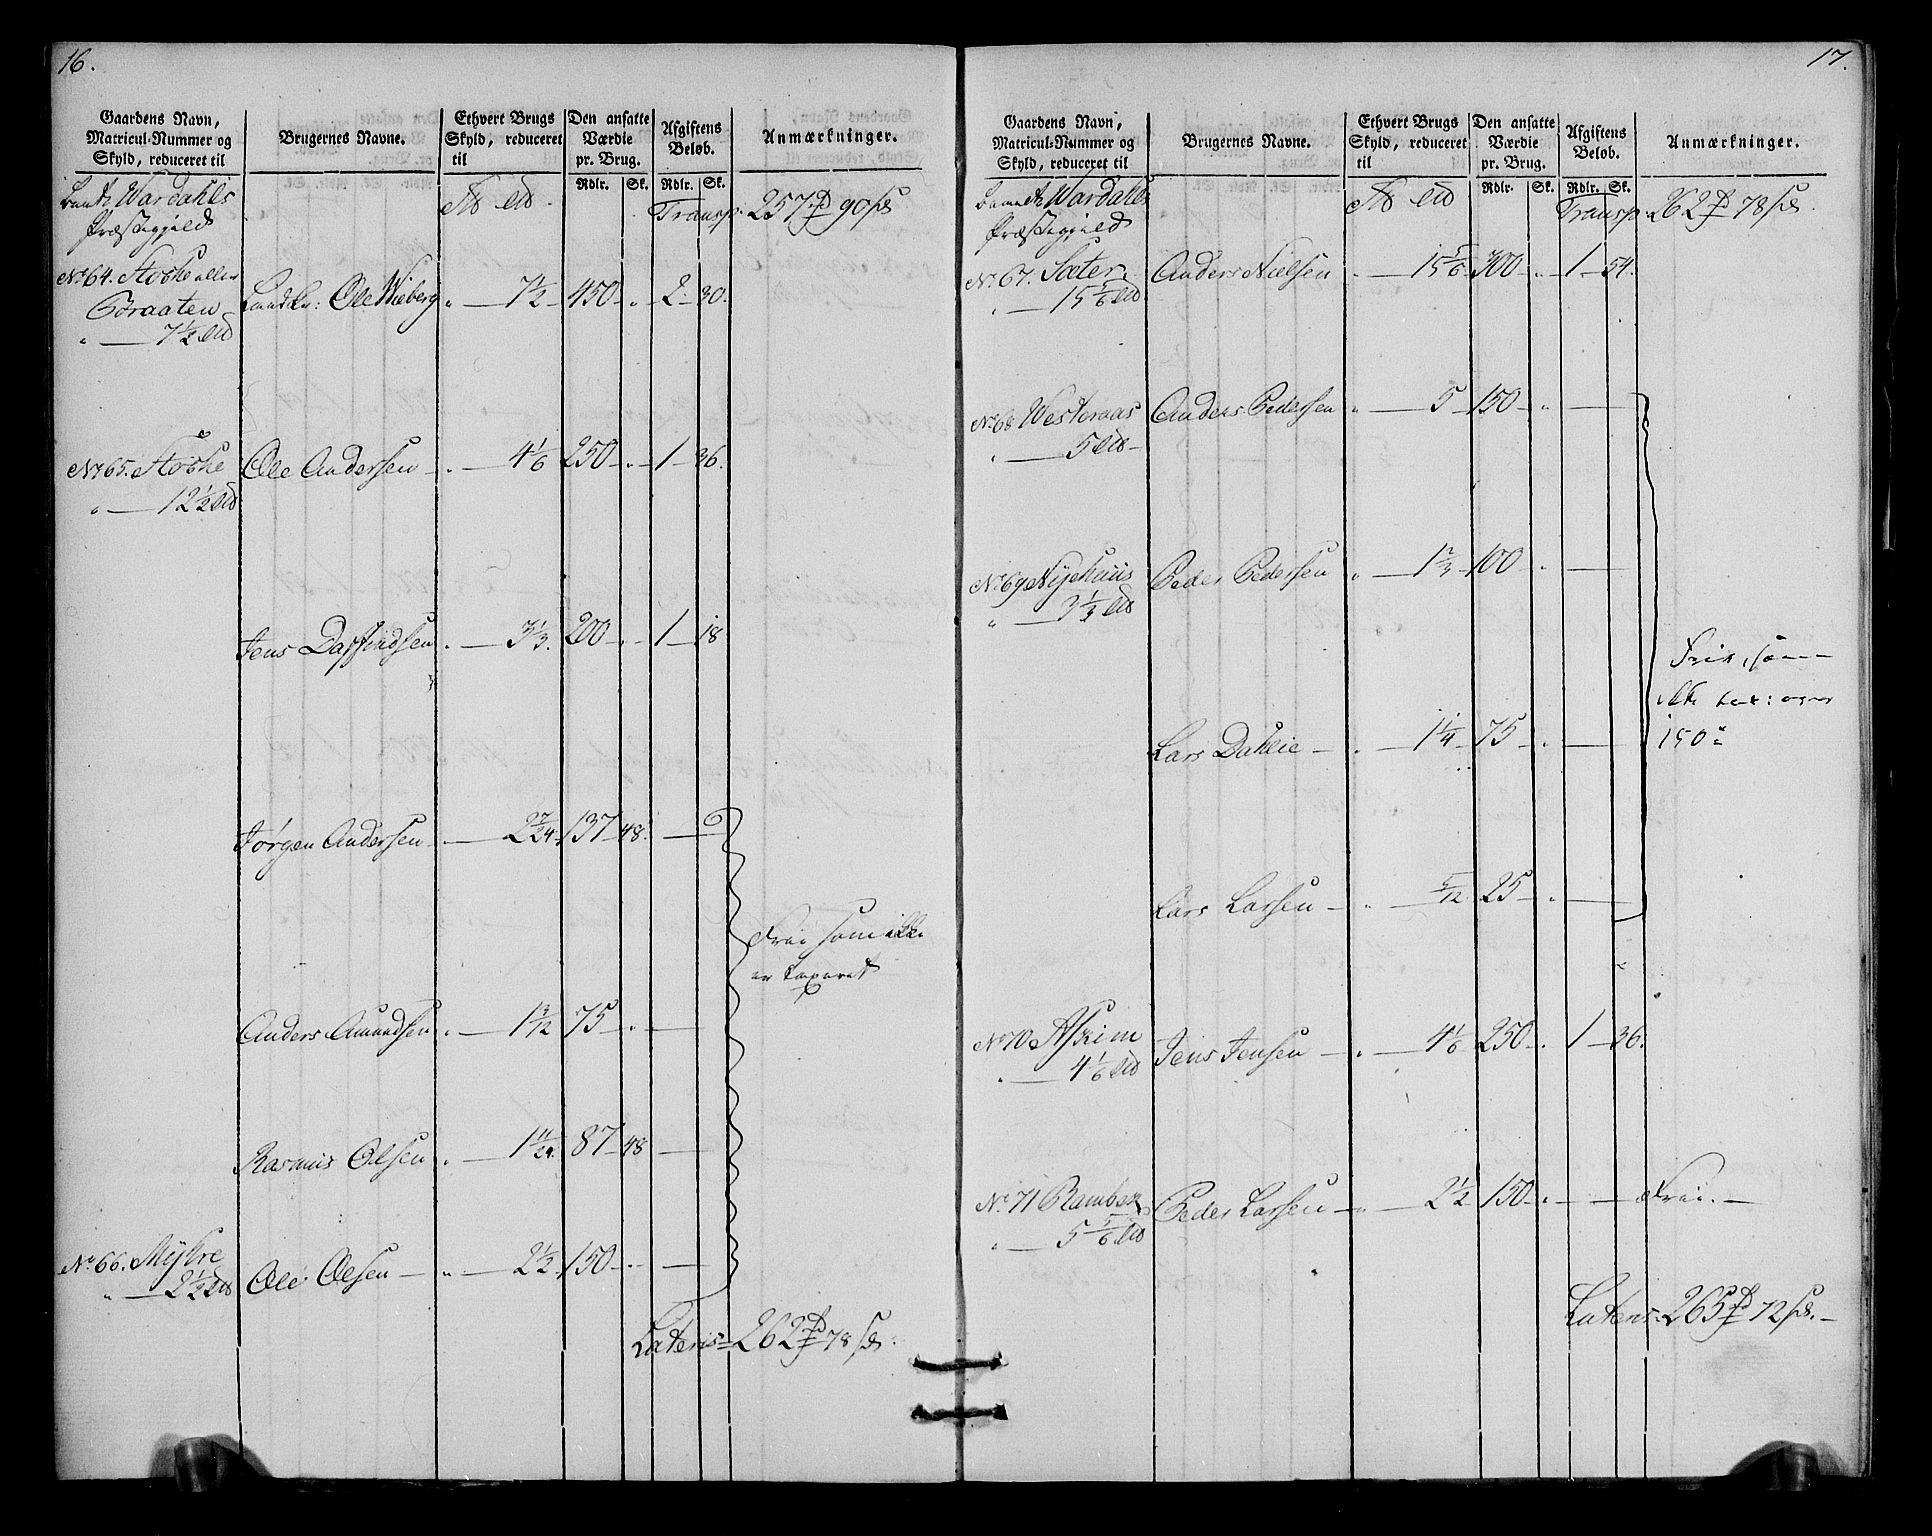 16.
Gaardens Navn,
Matricul-Nummer og
Skyld, reduceret til
Brugernes Navne.
Ethvert Brugs
Skyld, reduceret
til
Den ansatte
Værdie
pr. Brug.
Rdlr. Sk.
Afgiftens
Beløb.
Rdlr. Sk.
Anmærkninger.
Wardahls
Præstegjeld
Transp. 257 90
No 64. Stoske eller
Braaten
" — 7½
Ole Wieberg " — 7½ 450 - " 2 - 30.
No 65. Stoske
" — 12½
Ole Andersen - " — 4 1/6 250 - " 1 - 36.
Jens Daffindsen " — 3 1/3 200 - " 1 - 18
Jørgen Andersen - — 2 7/24 137 - 48. — 6
Frie som ikke
er taxeret
Anders Amundsen " — 1 3/12 75 - " —
Rasmus Olsen " — 1 11/24 87 - 48 —
No 66. Myhre
" — 2½
Ole Olsen — " — 2½ 150 - " —
Lateris 262 78
17.
Gaardens Navn,
Matricul-Nummer og
Skyld, reduceret til
Brugernes Navne.
Ethvert Brugs
Skyld, reduceret
til
Den ansatte
Værdie
pr. Brug.
Rdlr. Sk.
Afgiftens
Beløb.
Rdlr. Sk.
Anmærkninger.
Wardahls
Præstegjeld
Transp. 262 78
No 67. Sæter
" — 15 5/6
Anders Nielsen " — 15 5/6 300 - " 1 - 54.
No 68 Westeraas
" — 5
Anders Pedersen " — 5 150 - " —
No 69 Nyehuus
" — 3 1/3
Peder Pedersen " — 1 2/3 100 " —
Frie, som
ikke tax: over
150
Lars Dahlie — " — 1 1/4 75 - " —
Lars Larsen — " — 5/12 25 - " —
No 70 Askim
" — 4 1/6
Jens Jensen — " — 4 1/6 250 - " 1 - 36.
No 71 Ramberg
" — 5 5/6
Peder Larsen — " — 2½ 150 - " — — Frie. —
Latens 265 72